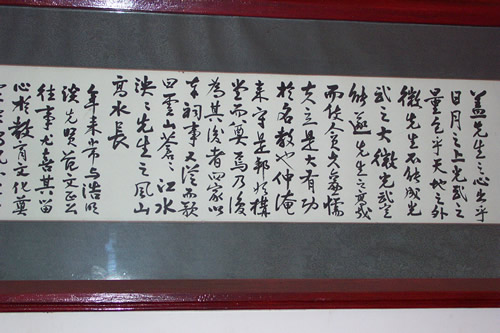 蓋先生之心出乎
日月之上光武之
量包乎天地之外
微先生不能成光
武之大微光武豈
能遂先生之高哉
而使貪夫廉懦
夫立是大有功
於名教也仲淹
來守是邦始構
堂而奠焉乃復
為其後者四家以
奉祠事又從而歌
曰雲山蒼〻江水
泱〻先生之風山
高水長
年来常与浩明
談先賢范文正公
往事尤喜其留
心於教育文化奠